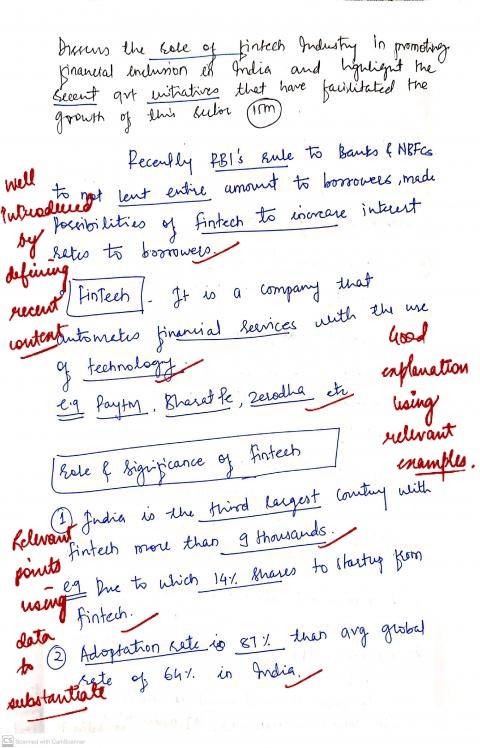 Discuss the role of fintech Industry in promoting
financial inclusion in India and highlight the
recent govt initiatives that have facilitated the
growth of this sector 15m
Recently RBI's rule to Banks & NBFCs
to not lent entire amount to borrowers, made
possibilities of fintech to increase interest
rates to borrowers.
Well
introduced
by
defining
recent
content
FinTech. It is a company that
automates financial services with the use
of technology.
e.g Paytm, BharatPe, Zerodha etc
Good
explanation
using
relevant
examples.
Role & Significance of fintech
① India is the third largest country with
fintech more than 9 thousands.
eg Due to which 14% shares to startup from
fintech.
② Adoptation rate is 87% than avg global
rate of 64% in India.
Relevant
points
using
data
to
substantiate
CS Scanned with CamScanner